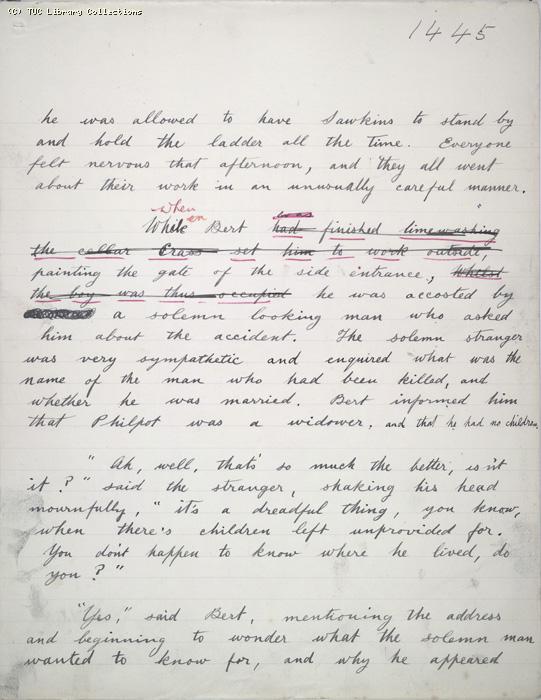 (C) TUC Library Collections
1445
he was allowed to have Sawkins to stand by
and hold the ladder all the time. Everyone
felt nervous that afternoon, and they all went
about their work in an unusually careful manner.
when
was
While Bert had finished limewashing
the cellar Crass set him to work outside,
painting the gate of the side entrance, Whilst
the boy was thus occupied he was accosted by
a solemn looking man who asked
him about the accident. The solemn stranger
was very sympathetic and enquired what was the
name of the man who had been killed, and
whether he was married. Bert informed him
that Philpot was a widower, and that he had no children.
"Ah, well, that's so much the better, isn't
it?" said the stranger, shaking his head
mournfully, "it's a dreadful thing, you know,
when there's children left unprovided for.
You don't happen to know where he lived, do
you?"
"Yes," said Bert, mentioning the address
and beginning to wonder what the solemn man
wanted to know for, and why he appeared